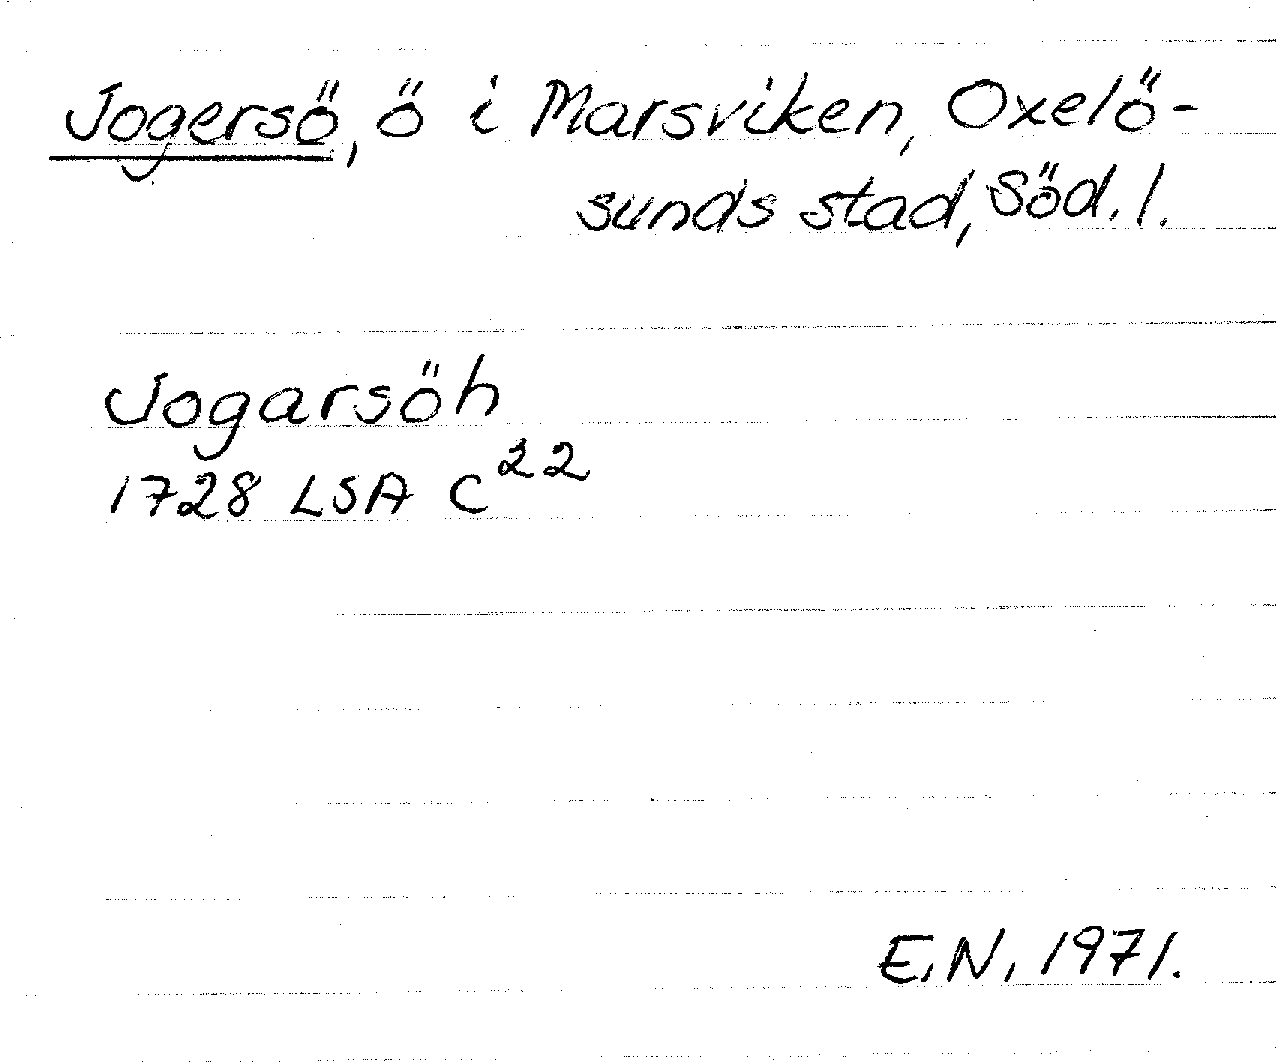 Jogersö, ö i Marsviken, Oxelö-
sunds stad, Söd. l.
Jogarsöh
1728 LSA C²²
E.N. 1971.